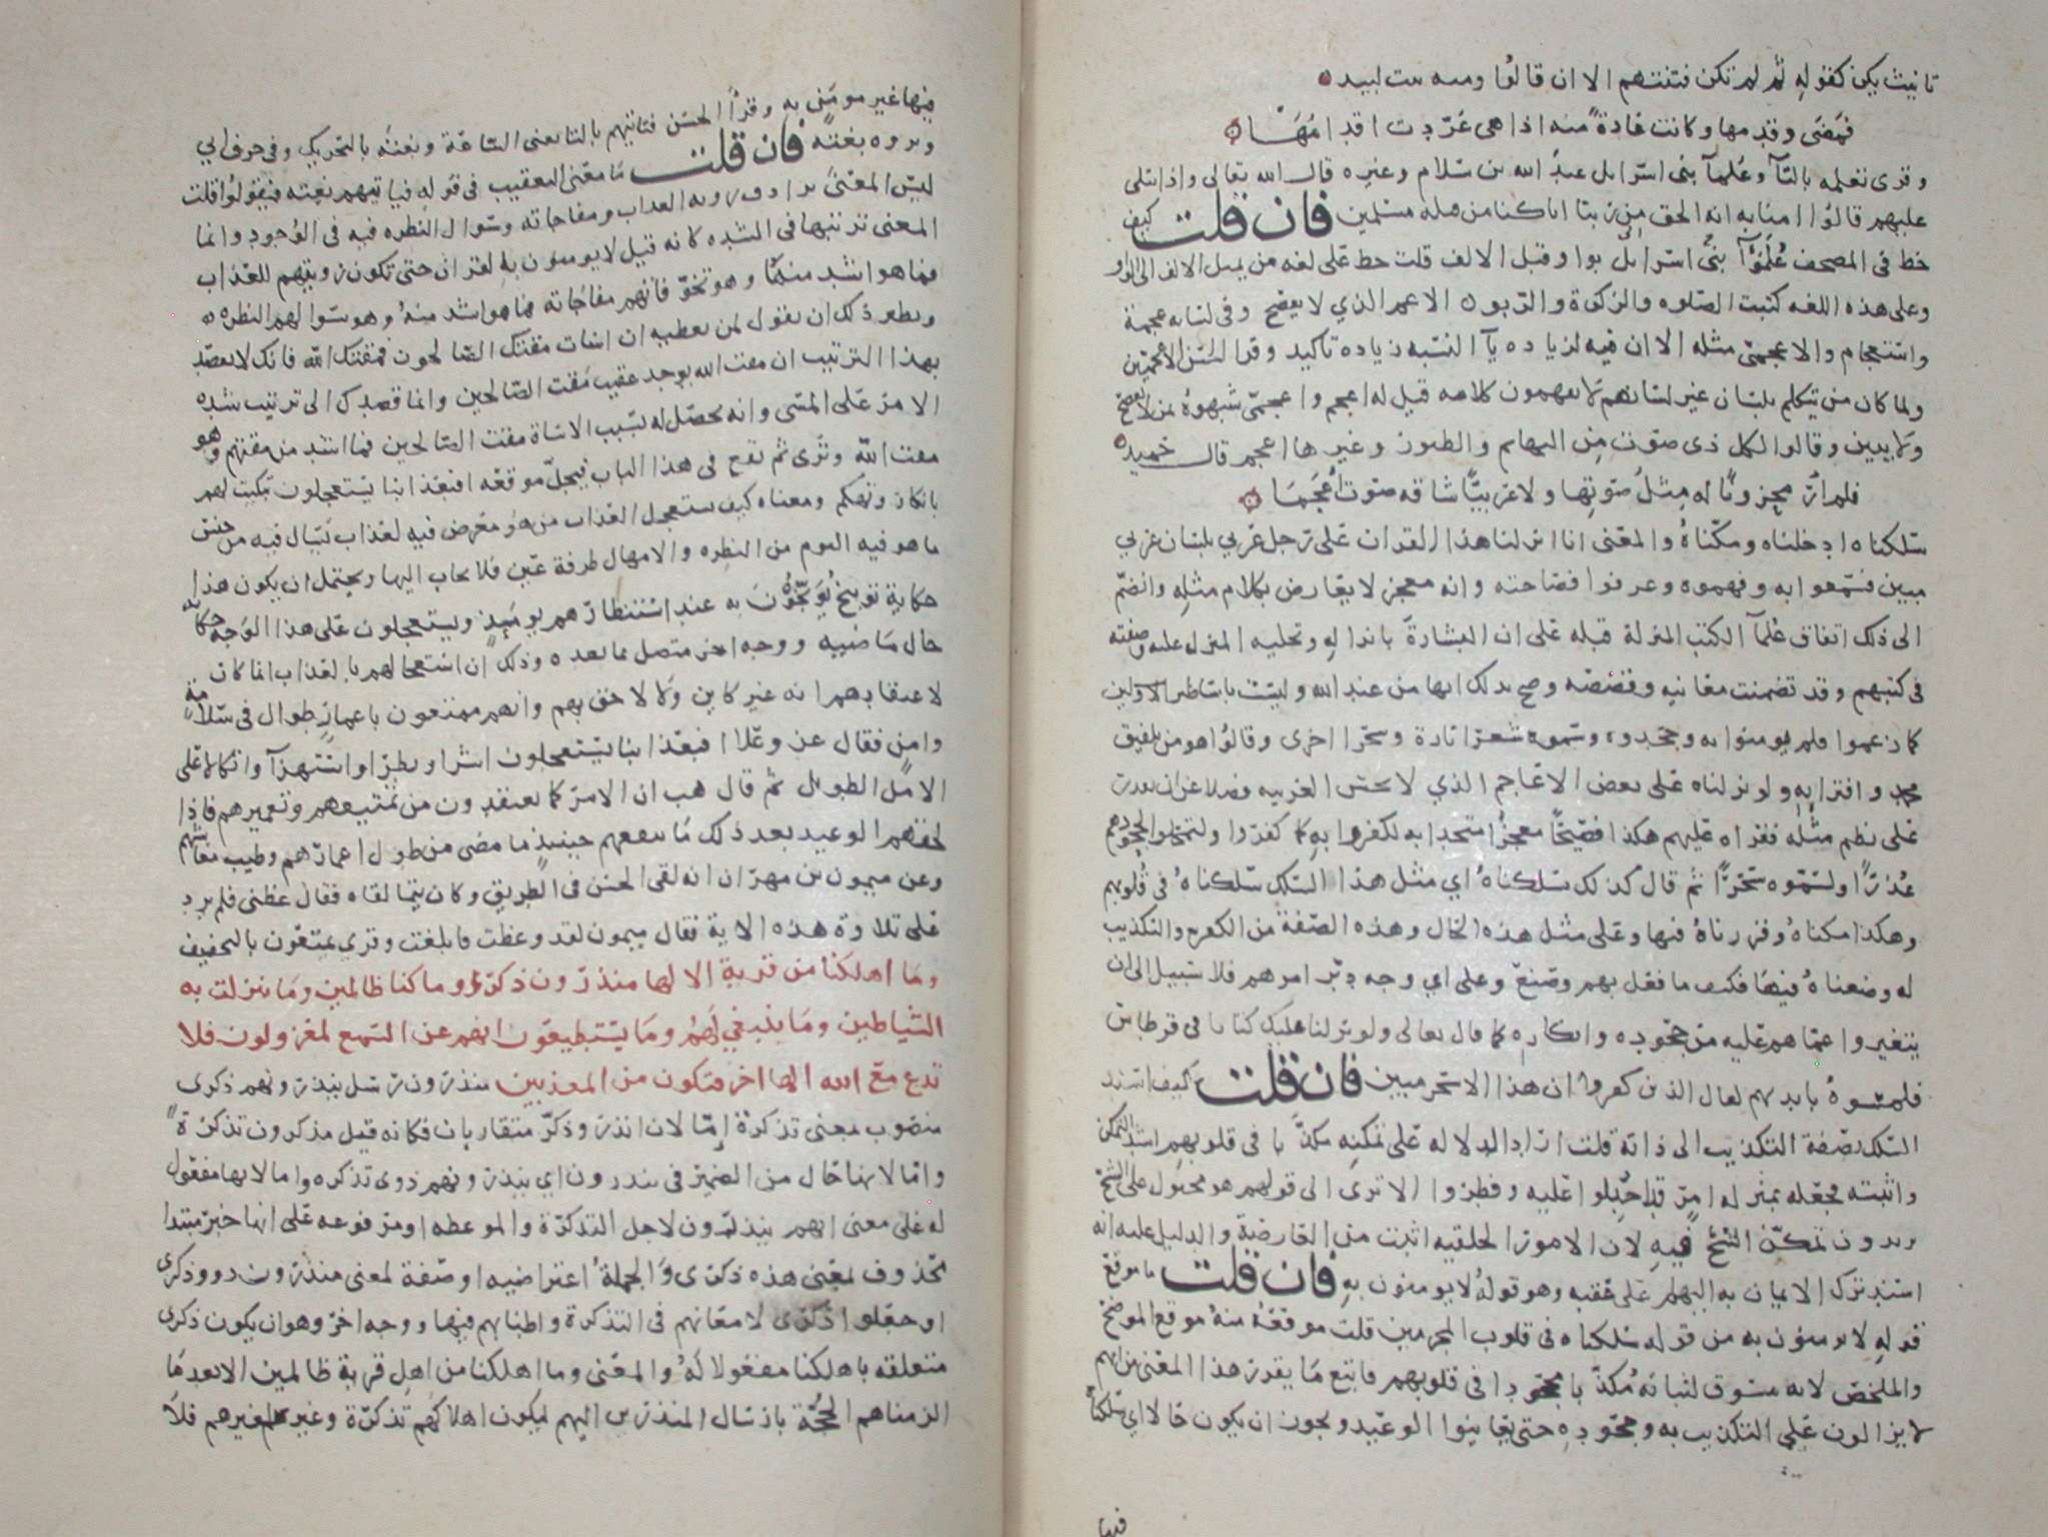 تانيث يكن كقوله ثم لم تكن فتنتهم الا ان قالوا ومنه بيت لبيد
فمضى وقدمها وكانت عادة منه اذا هي عردت اقدامها
وقرى تعلمه بالتآ وعلمآ بنى اسرائل عبد الله بن سلام وغيره قال الله تعالى واذا يتلى
عليهم قالوا امنا به انه الحق من ربنا انا كنا من قبله مسلمين فان قلت كيف
خط في المصحف علمؤآ بنى اسرائل بواو قبل الالف قلت خط على لغه من يميل الالف الى الواو
وعلى هذه اللغه كتبت الصلوه والزكوة والربو الاعجم الذي لا يفصح وفي لسانه عجمة
واستعجام والاعجمى مثله الا ان فيه لزياده يآ النسبه زياده تاكيد وقرا الحسن الاعجميين
ولما كان من يتكلم بلسان غير لسانهم لا يفهمون كلامه قيل له اعجم واعجمى شبهوه بمن لا يفصح
ولا يبين وقالوا لكل ذى صوت من البهايم والطيور وغيرها اعجم قال حميد
فلم ار محزونا له مثل صوتها ولا عربيا شاقه صوت اعجما
سلكناه ادخلناه ومكناه والمعنى انا انزلنا هذا القران على رجل عربي بلسان عربي
مبين فسمعوا به وفهموه وعرفوا فصاحته وانه معجز لا يعارض بكلام مثله وانضم
الى ذلك اتفاق علمآ الكتب المنزلة قبله على ان البشارة بانزاله وتحليه المنزل عليه وصفته
في كتبهم وقد تضمنت معانيه وقصصه وصح بذلك انها من عند الله وليست باساطير الاولين
كما زعموا فلم يومنوا به وجحدوه وسموه شعرا تارة وسحرا اخرى وقالوا هو من تلفيق
محمد وافترايه ولو نزلناه على بعض الاعاجم الذي لا يحسن العربيه فضلا عن ان يقدر
على نظم مثله فقراه عليهم هكذا فصيحا معجزا متحدا به لكفروا به كما كفروا ولتمحلوا لجحودهم
عذرا ولسموه سحرا ثم قال كذلك سلكناه اي مثل هذا السلك سلكناه في قلوبهم
وهكذا مكناه وقررناه فيها وعلى مثل هذه الحال وهذه الصفة من الكفر والتكذيب
له وضعناه فيها فكيف ما فعل بهم وصنع وعلى اي وجه دبر امرهم فلا سبيل الى ان
يتغيروا عما هم عليه من جحوده وانكاره كما قال تعالى ولو نزلنا عليك كتابا في قرطاس
فلمسوه بايديهم لقال الذين كفروا ان هذا الا سحر مبين فان قلت كيف اسند
السلك بصفة التكذيب الى ذاته قلت اراد الدلاله على تمكنه مكذبا في قلوبهم اشد التمكن
واثبته فجعله بمنزله امر قد جبلوا عليه وفطروا الا ترى الى قولهم هو مجبول على الشح
يريدون تمكن الشح فيه لان الامور الخلقيه اثبت من العارضة والدليل عليه انه
اسند ترك الايمان به اليهم على عقبه وهو قوله لا يومنون به فان قلت ما موقع
قوله لا يومنون به من قوله سلكناه في قلوب المجرمين قلت موقعه منه موقع الموضح
والملخص لانه مسوق لثباته مكذبا مجحودا في قلوبهم فاتبع ما يقرر هذا المعنى من انهم
لا يزالون على التكذيب به وجحوده حتى يعاينوا الوعيد ويجوز ان يكون حالا اي سلكناه
فيها
فيها غير مومن به وقرأ الحسن فتاتيهم بالتا يعنى الساعة وبغتة بالتحريك وفي حرف ابي
ويروه بغتة فان قلت ما معنى التعقيب في قوله فياتيهم بغته فيقولوا قلت
ليس المعنى ترادف رويه العذاب ومفاجاته وسوال النظره فيه في الوجود وانما
المعنى ترتبها في الشده كانه قيل لا يومنون بالقران حتى تكون رويتهم للعذاب
فما هو اشد منها وهو لحوقه بهم مفاجاته فما هو اشد منه وهو سوالهم النظره
ونظير ذلك ان تقول لمن تعظه ان اسات مقتك الصالحون فمقتك الله فانك لا تقصد
بهذا الترتيب ان مقت الله يوجد عقيب مقت الصالحين وانما قصدك الى ترتيب شده
الامر على المسى وانه يحصل له بسبب الاساة مقت الصالحين فما اشد من مقتهم وهو
مقت الله وترى ثم تقع في هذا الباب فيجل موقعه افبعذابنا يستعجلون تبكيت لهم
بانكار وتهكم ومعناه كيف يستعجل العذاب من هو معرض فيه لعذاب يسال فيه من جنس
ما هو فيه اليوم من النظره والامهال طرفة عين فلا يجاب اليها ويحتمل ان يكون هذا
حكاية توبيخ يوبخون به عند استنظارهم يوميذ ويستعجلون على هذا الوجه حكاية
حال ماضيه ووجه اخر متصل بما بعده وذلك ان استعجالهم بالعذاب انما كان
لاعتقادهم انه غير كاين ولا لاحق بهم وانهم ممتعون باعمار طوال في سلامة
وامن فقال عز وعلا افبعذابنا يستعجلون اشرا وبطرا واستهزآ واتكالا على
الامل الطويل ثم قال هب ان الامر كما يعتقدون من تمتيعهم وتعميرهم فاذا
لحقهم الوعيد بعد ذلك ما ينفعهم حينيذ ما مضى من طول اعمارهم وطيب معايشهم
وعن ميمون بن مهران انه لقى الحسن في الطريق وكان يتمنا لقاه فقال عظنى فلم يزد
على تلاوة هذه الاية فقال ميمون لقد وعظت فابلغت وقرى يمتعون بالتخفيف
وما اهلكنا من قرية الا لها منذرون ذكرى وما كنا ظالمين وما تنزلت به
الشياطين وما ينبغي لهم وما يستطيعون انهم عن السمع لمعزولون فلا
تدع مع الله الها اخر فتكون من المعذبين منذرون رسل ينذرونهم ذكرى
منصوب بمعنى تذكرة إما لان انذر وذكر متقاربان فكانه قيل مذكرون تذكرة
واما لانها حال من الضمير في منذرون اي ينذرونهم ذوى تذكره واما لانها مفعول
له على معنى انهم ينذرون لاجل التذكرة والموعظه او مرفوعه على انها خبر مبتدا
محذوف لمعنى هذه ذكرى والجملة اعتراضيه او صفة لمعنى منذرون ذوو ذكرى
او جعلوا ذكرى لامعانهم في التذكرة واطنابهم فيها ووجه اخر وهو ان يكون ذكرى
متعلقه باهلكنا مفعولا له والمعنى وما اهلكنا من اهل قرية ظالمين الا بعد ما
الزمناهم الحجة بارسال المنذرين اليهم ليكون اهلاكهم تذكرة وعبره لغيرهم فلا